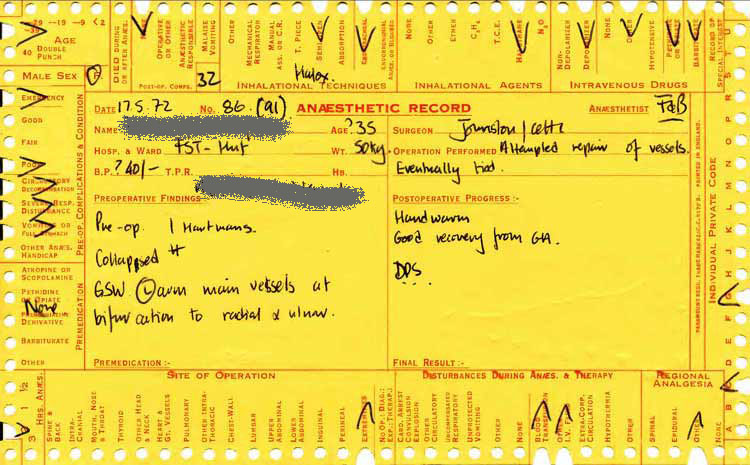 29 -19 -9 <2
-39
AGE
40 DOUBLE PUNCH
MALE SEX F
DIED DURING OR AFTER ANÆS.
OPERATIVE OR OTHER
ANÆSTHETIC RESPONSIBLE
MALAISE VOMITING
OTHER
POST-OP. COMPS.
32
MECHANICAL RESPIRATOR
MANUAL ASS. OR C.R.
T. PIECE
ABSORPTION
Halox.
INHALATIONAL TECHNIQUES
NONE
OTHER
ETHER
C₃H₆
T.C.E.
HALOTHANE
N₂O
INHALATIONAL AGENTS
NON-DEPOLARIZER
DEPOLARIZER
NONE
OTHER
HYPOTENSIVE
INTRAVENOUS DRUGS
RECORD OF SPECIAL INTEREST
EMERGENCY
GOOD
FAIR
POOR
CIRCULATORY DECOMPENSATION
SEVERE RESP. DISTURBANCE
VOMITING OR FULL STOMACH
OTHER ANÆS. HANDICAP
PRE-OP. COMPLICATIONS & CONDITION
ATROPINE OR SCOPOLAMINE
PETHIDINE OR OPIATE
None
DERIVATIVE
BARBITURATE
OTHER
PREMEDICATION
DATE 17.5.72 No. 86. (91) ANÆSTHETIC RECORD ANÆSTHETIST
NAME AGE ?35 SURGEON Johnston/
HOSP. & WARD WT. 50kg. OPERATION PERFORMED Attempted repair of vessels.
B.P. ?40/- T.P.R. HB. Eventually tied.
PREOPERATIVE FINDINGS POSTOPERATIVE PROGRESS :-
Pre-op. 1 Hartmans.
Collapsed #
GSW Ⓛ arm main vessels at
bifurcation to radial & ulnar.
Handwarm
Good recovery from GA.
DDS
PREMEDICATION :- FINAL RESULT :-
PRINTED IN ENGLAND.
INDIVIDUAL PRIVATE CODE
3 1 ½
HRS. ANÆS.
SITE OF OPERATION
SPINE & BACK
INTRA-CRANIAL
MOUTH, NOSE & THROAT
THYROID
OTHER HEAD & NECK
HEART & GT. VESSELS
PULMONARY
OTHER INTRA-THORACIC
CHEST-WALL
LUMBAR
UPPER ABDOMINAL
LOWER ABDOMINAL
INGUINAL
PERINEAL
EXTREMITIES
DISTURBANCES DURING ANÆS. & THERAPY
NO OP.: DIAG.: EXP.: THERAP.:
CARD. ARREST CONVULSION EXPLOSION
OTHER CIRCULATORY
UNCOMPENSATED RESPIRATORY
UNPROTECTED VOMITING
OTHER
NONE
BLOOD
EXTRA-CORP. CIRCULATION
HYPOTHERMIA
OTHER
REGIONAL ANALGESIA
SPINAL
EPIDURAL
OTHER
NONE